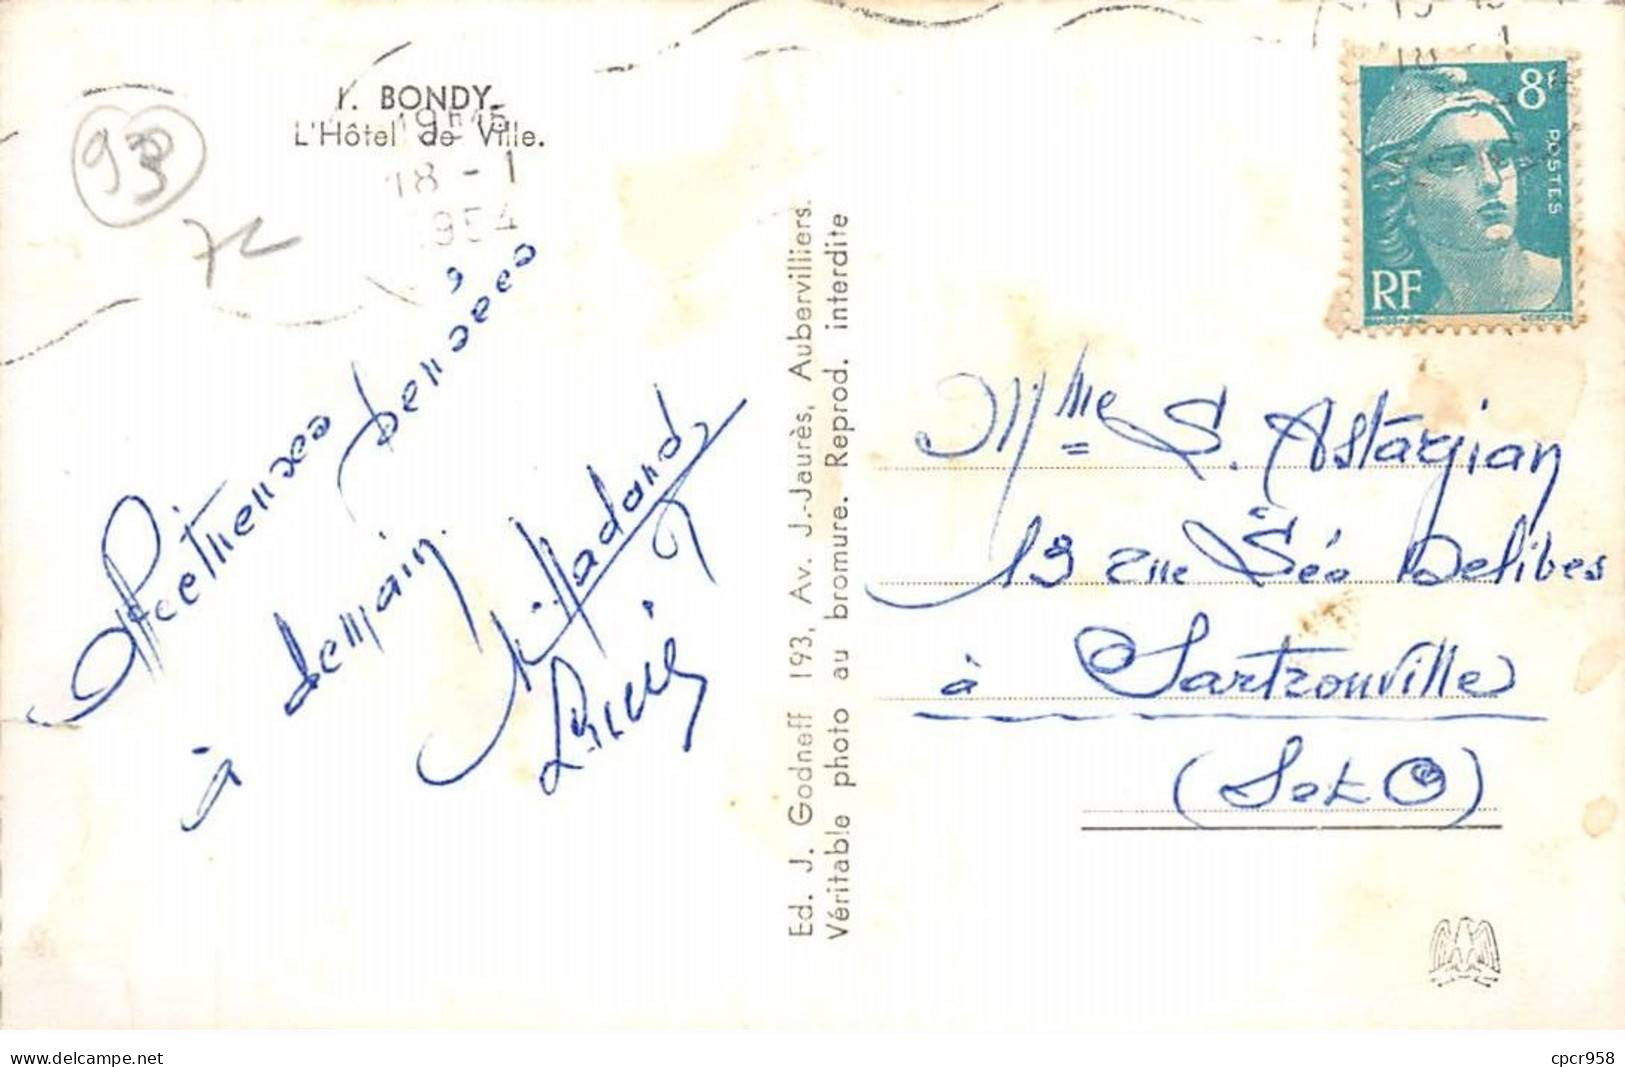 93
7c
1. BONDY.
L'Hôtel de Ville.
18 - 1
1954
Affectueuses pensées
à demain
Lucie
Ed. J. Godneff 193, Av. J.-Jaurès, Aubervilliers.
Véritable photo au bromure. Reprod. interdite
8F
POSTES
RF
Mme S. Astarjian
13 rue Léo Delibes
à Sartrouville
(S et O)
www.delcampe.net
cpcr958